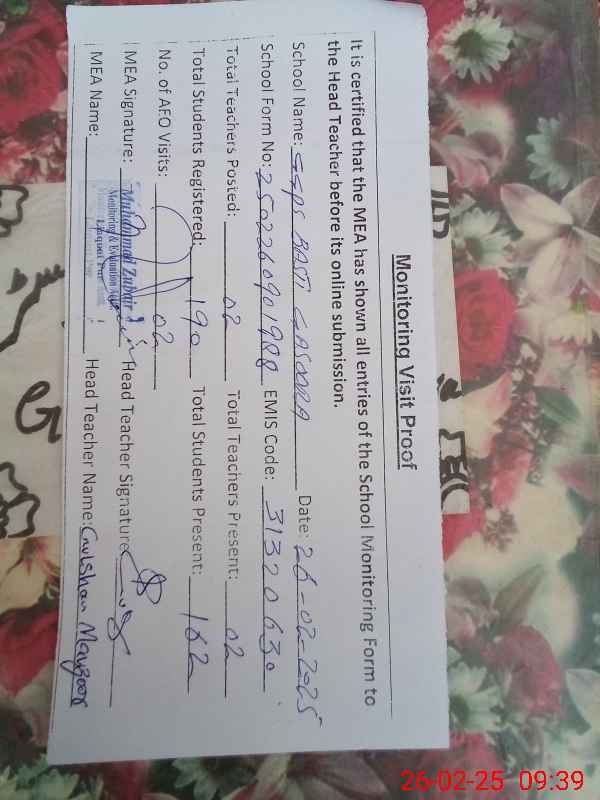 Monitoring Visit Proof
It is certified that the MEA has shown all entries of the School Monitoring Form to
the Head Teacher before its online submission.
School Name: GGPS BASTI GASOORA Date: 26-02-2025
School Form No: 2502260901988 EMIS Code: 31320630
Total Teachers Posted: 02 Total Teachers Present: 02
Total Students Registered: 190 Total Students Present: 162
No. of AFO Visits: 02
MEA Signature: Head Teacher Signature
Muhammad Zubair
Monitoring & Evaluation
Liaquat Pur
MEA Name: Head Teacher Name: Gulshan Manzoor
26-02-25 09:39